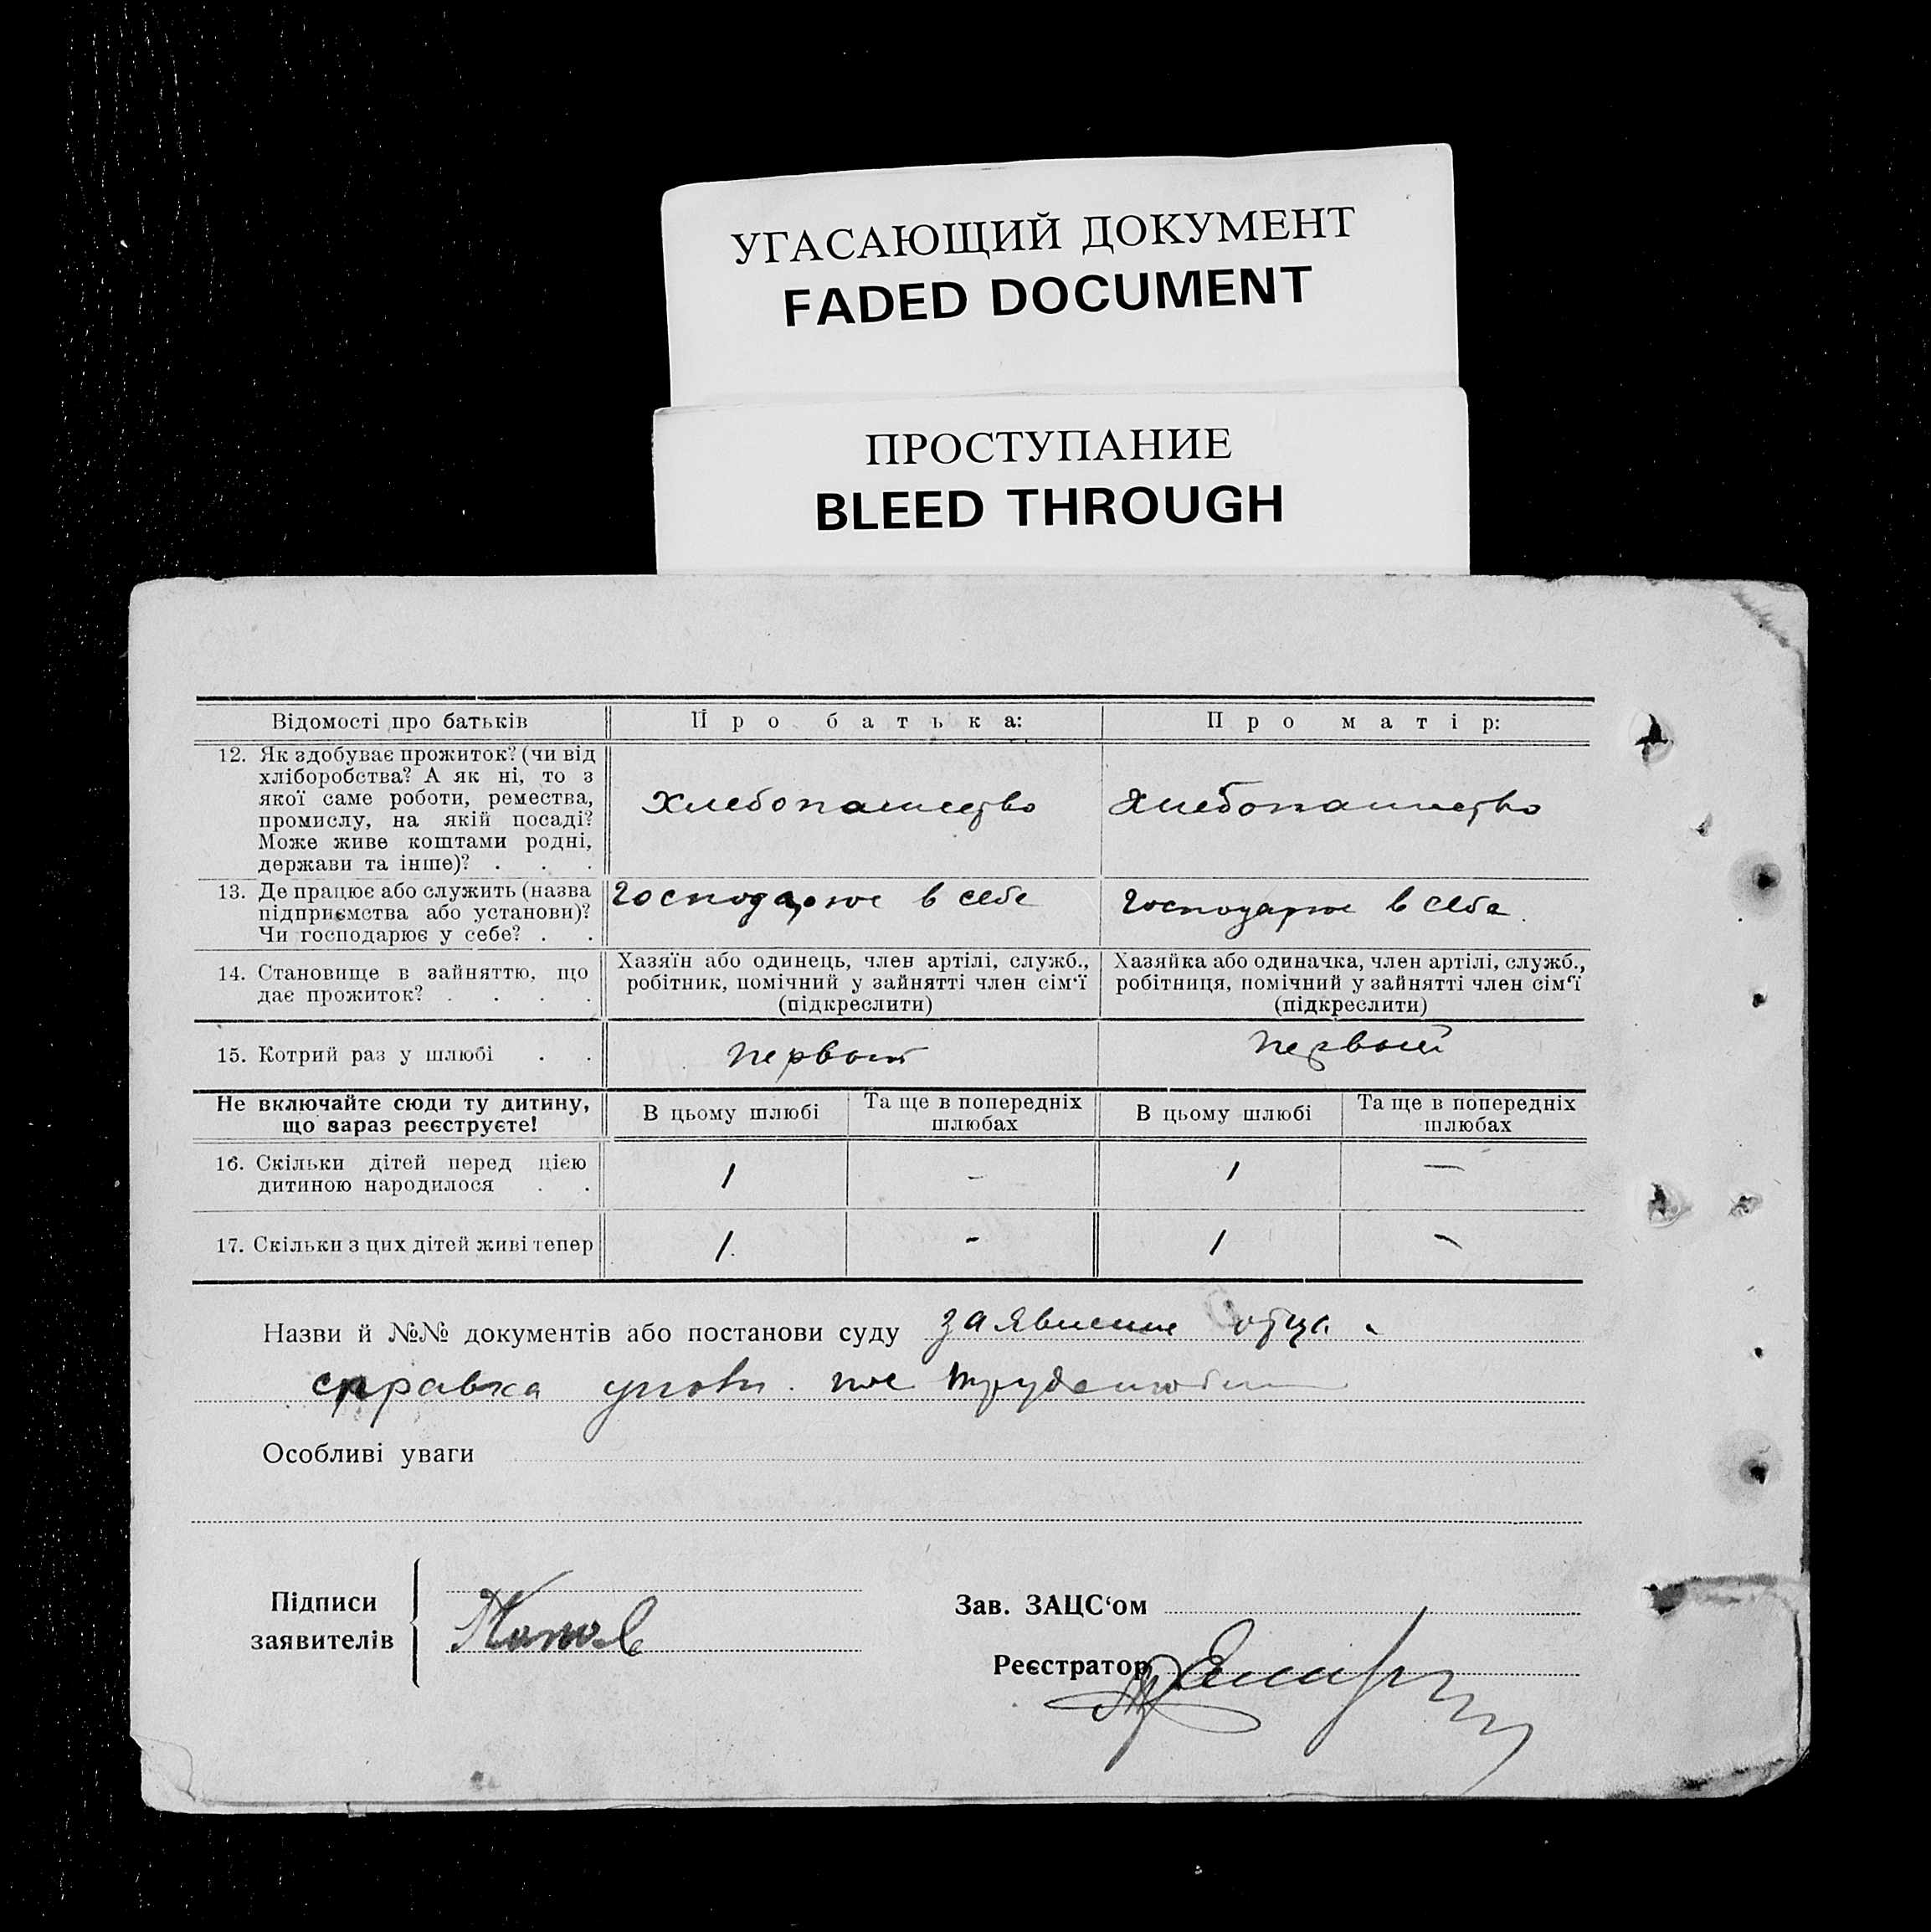 УГАСАЮЩИЙ ДОКУМЕНТ
FADED DOCUMENT
ПРОСТУПАНИЕ
BLEED THROUGH
Відомості про батьків
Про батька:
Про матір:
12. Як здобуває прожиток? (чи від
хліборобства? А як ні, то з
якої саме роботи, ремества,
промислу, на якій посаді?
Може живе коштами родні,
держави та інше)? . . .
Хлебопашество
Хлебопашество
13. Де працює або служить (назва
підприємства або установи)?
Чи господарює у себе? . .
Господарює в себе
Господарює в себе.
14. Становище в зайняттю, що
дає прожиток? . . . .
Хазяїн або одинець, член артілі, служб.,
робітник, помічний у зайнятті член сім‘ї
(підкреслити)
Хазяйка або одиначка, член артілі, служб.,
робітниця, помічний у зайнятті член сім‘ї
(підкреслити)
15. Котрий раз у шлюбі . .
первый
первый
Не включайте сюди ту дитину,
що зараз реєструєте!
В цьому шлюбі
Та ще в попередніх
шлюбах
В цьому шлюбі
Та ще в попередніх
шлюбах
16. Скільки дітей перед цією
дитиною народилося . .
1
-
1
—
17. Скільки з цих дітей живі тепер
1.
-
1
-
Назви й №№ документів або постанови суду заявление отца
справка
Особливі уваги
Підписи
заявителів
Зав. ЗАЦС‘ом
Реєстратор